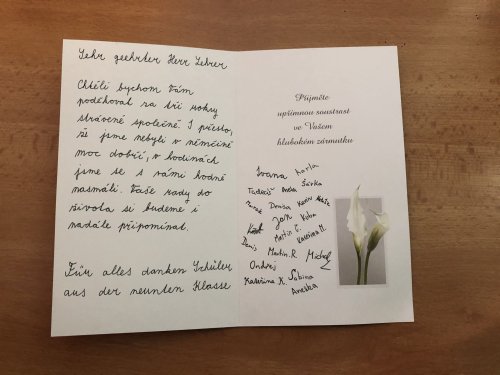 Sehr geehrter Herr Lehrer
Chtěli bychom Vám
poděkovat za tři roky
strávené společně. I přesto,
že jsme nebyli v němčině
moc dobří, v hodinách
jsme se s vámi hodně
nasmáli. Vaše rady do
života si budeme i
nadále připomínat.
Für alles danken Schüler
aus der neunten Klasse
Přijměte
upřímnou soustrast
ve Vašem
hlubokém zármutku
Ivana Karla
Tadeáš Šárka
Marek Denisa
Jan Kuba
Martin Č. Kateřina M.
Denis Martin R. Michal
Ondřej
Kateřina K. Sabina
Anežka